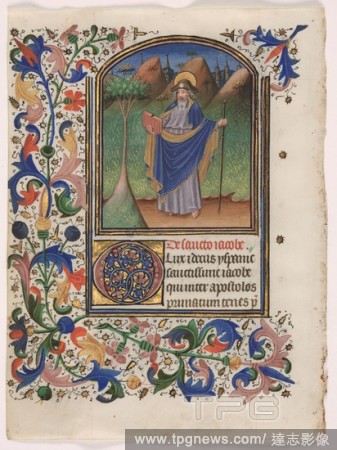 De sancto iacobo.
Lux decus yspanie
sanctissime iacobe
qui inter apostolos
primatum tenes p
TPG
www.tpgnews.com/ 達志影像